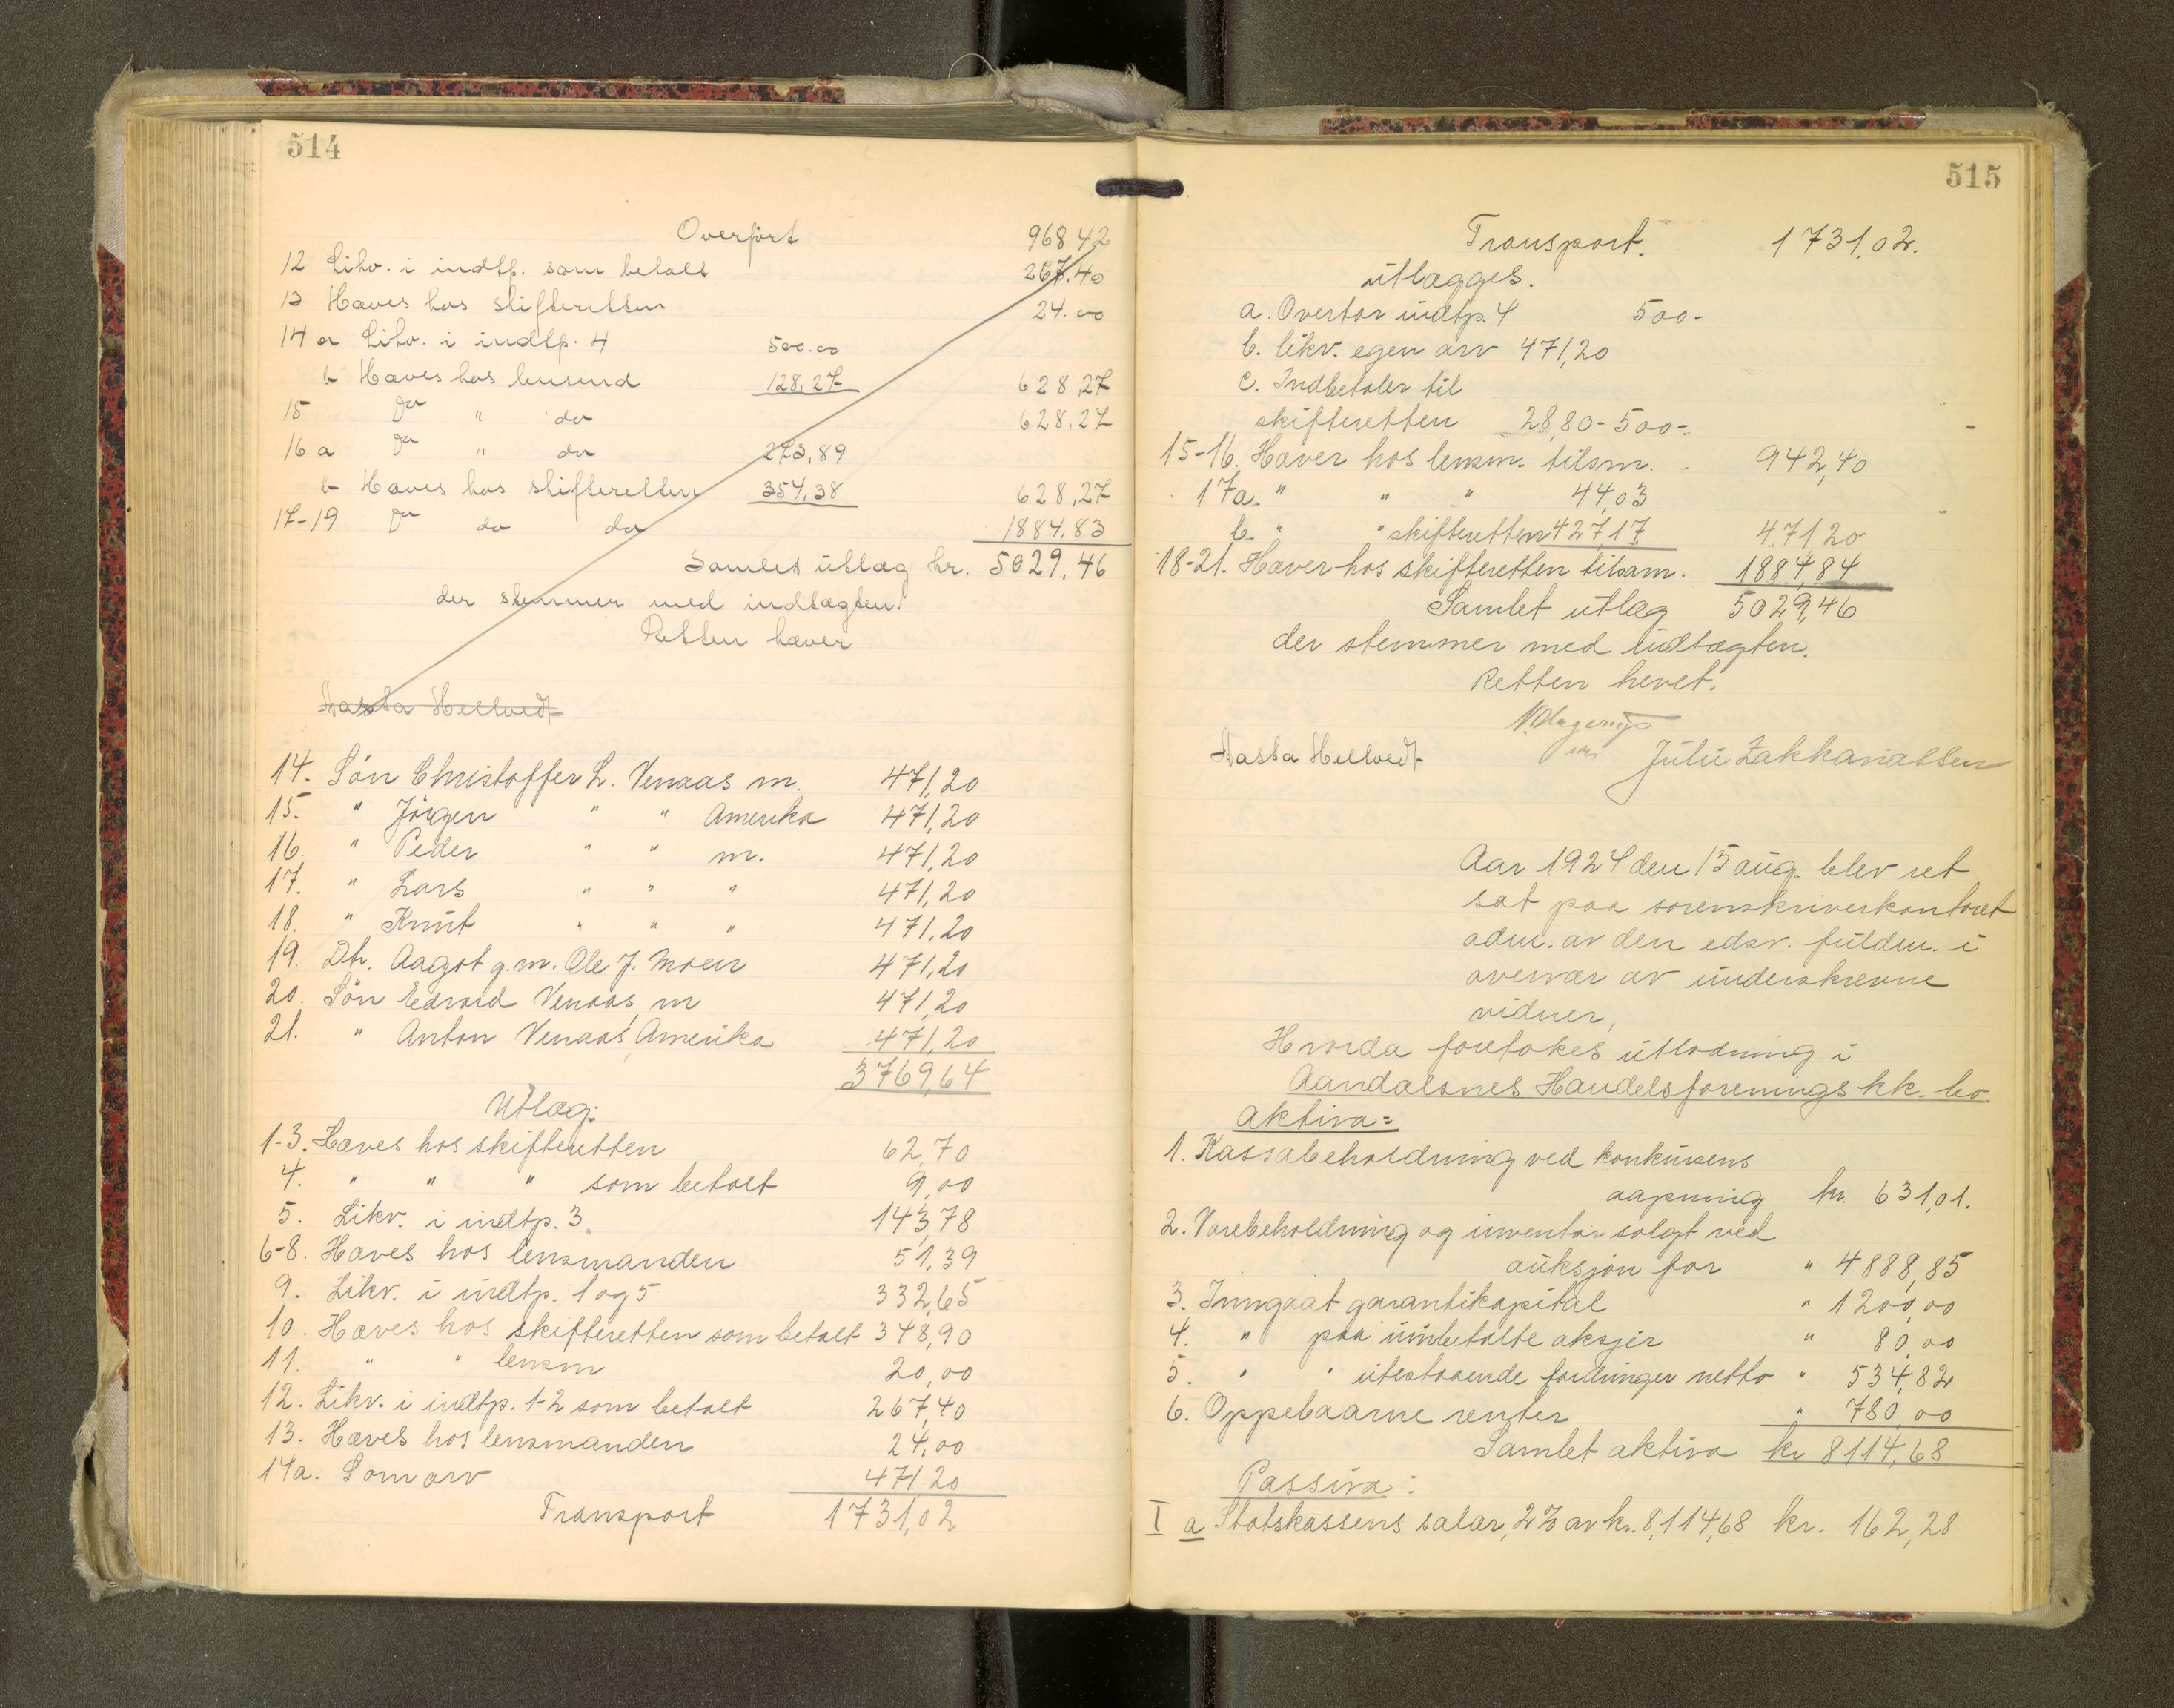 514
Overført 968 42
12 Likv. i indtp. som betalt 267.40
13 Haves hos skifteretten 24.00
14 a Likv. i indtp. 4 500.00
b Haves hos lensmd 128,27 628,27
15 do " do 628,27
16 a do " do 273,89
b Haves hos skifteretten 354,38 628,27
17-19 do do do 1884,83
Samlet utlæg kr. 5029,46
der stemmer med indtægten.
Retten hæver
Aasta Hellvedt
14. Søn Christoffer L. Venaas m. 471,20
15. " Jörgen " " Amerika 471,20
16. " Peder " " m. 471,20
17. " Lars " " " 471,20
18. " Knut " " " 471,20
19. Dtr. Aagot g.m. Ole J. Moen 471,20
20. Søn Edvard Venaas, m 471,20
21. " Anton Venaas, Amerika 471,20
3769,64
Utlæg:
1-3. Haves hos skifteretten 62,70
4. " " " som betalt 9,00
5. Likv. i indtp. 3. 143,78
6-8. Haves hos lensmanden 51,39
9. Likv. i indtp. 1 og 5 332,65
10. Haves hos skifteretten som betalt 348,90
11. " " lensm 20,00
12. Likv. i indtp. 1-2 som betalt 267,40
13. Haves hos lensmanden 24,00
14a. Som arv 471.20
Transport 1731,02
515
Transport. 1731,02.
utlægges.
a. Overtar indtp. 4 500-
b. likv. egen arv 471,20
c. Indbetaler til
skifteretten 28,80 - 500-.
15-16. Haver hos lensm. tilsm. 942,40
17a. " " " 44,03
b. " " skifteretten 427,17 471 20
18-21. Haver hos skifteretten tilsam. 1884,84
Samlet utlæg 5029,46
der stemmer med indtægten.
Retten hevet.
Aasta Hellvedt Julie Zakkariassen
Aar 1924 den 15 aug. blev ret
sat paa sorenskriverkontoret
adm. av den edsv. fuldm. i
overvær av underskrevne
vidner,
Hvorda foretokes utlodning i
Aandalsnes Handelsforenings kk. bo.
Aktiva =
1. Kassabeholdning ved konkursens
aapning kr. 631,01.
2. Varebeholdning og inventar solgt ved
auksjon for " 4888,85
3. Inngaat garantikapital " 1200,00
4. " paa uinbetalte aksjer " 80,00
5. " " utestaaende fordringer netto " 534,82
6. Oppebaarne renter " 780,00
Samlet aktiva kr 8114,68
Passiva:
I a Statskassens salær, 2% av kr. 8,114,68 kr. 162,28